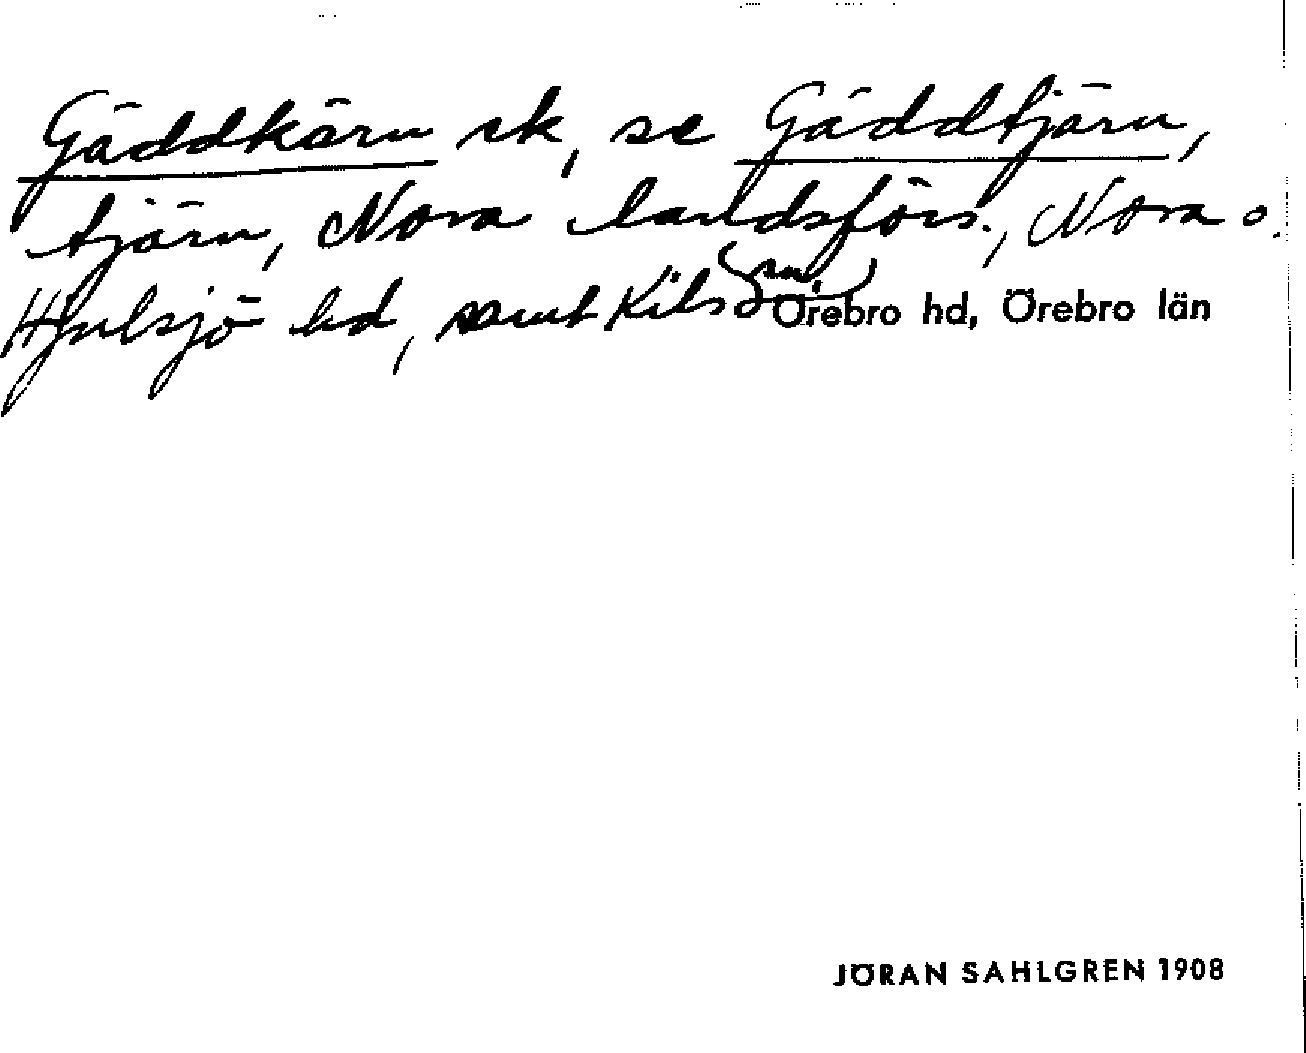 Gäddkärn sk, se Gäddtjärn,
tjärn, Nora landsförs., Nora o.
Hjulsjö hd, samt Kils sn, Örebro hd, Örebro län
JÖRAN SAHLGREN 1908